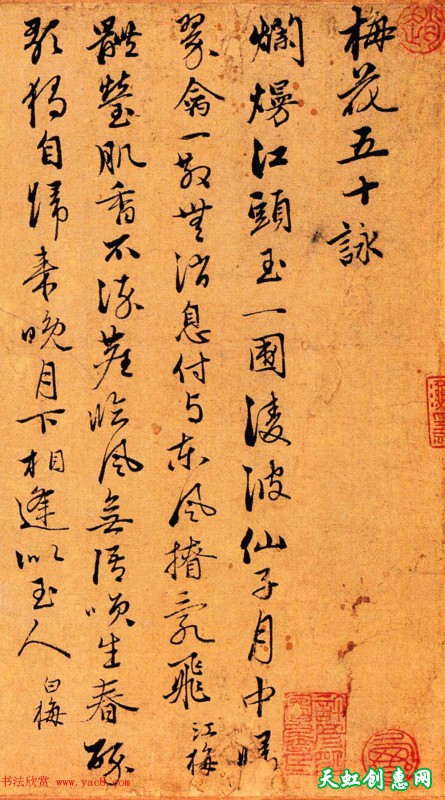 梅花五十詠
爛熳江頭玉一圍凌波仙子月中歸
翠禽一散無消息付与東風亂飛 江梅
體瑩肌香不塵臨風無語咲生春醉
歌獨自歸來晚月下相逢似玉人 白梅
书法欣赏 www.yac8.com
天虹创惠网